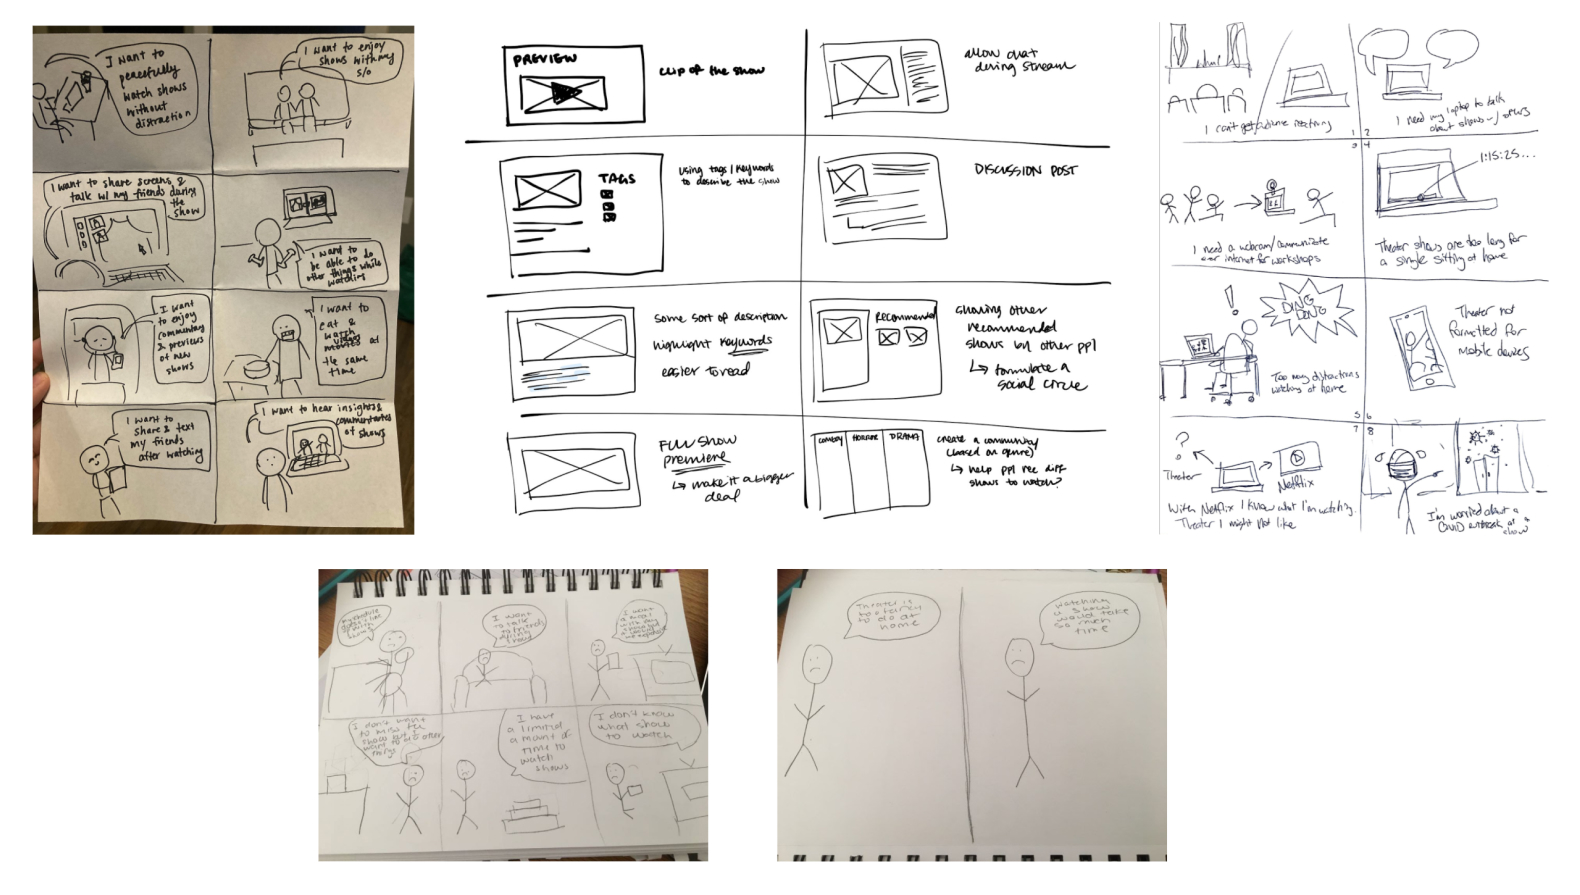 I want to
peacefully
watch shows
without
distraction
I want to enjoy
shows with my
s/o
I want to share screens &
talk w/ my friends during
the
show
I want to
be able to do
other things while
watching
I want
to enjoy
commentary
& previews
of new
shows
I want to
eat &
watch
movies at
the same
time
I want to
share & text
my friends
after watching
I want to hear insights &
commentaries
of shows
PREVIEW
clip of the show
allow chat
during stream
TAGS
using tags/keywords
to describe the show
DISCUSSION POST
some sort of description
highlight keywords
easier to read
Recommended
sharing other
recommended
shows by other ppl
↳ formulate a
social circle
FULL SHOW
premiere
↳ make it a bigger
deal
COMEDY
HORROR
DRAMA
create a community
(based on genre)
↳ help ppl rec diff
shows to watch?
I can't get audience reactions
1
2
I need my laptop to talk
about shows w/ others
3
4
I need a webcam/communicate
over internet for workshops
1:15:25...
Theater shows are too long for
a single sitting at home
!
DING
DONG
Too many distractions
watching at home
Theater not
formatted for
mobile devices
5
6
7
8
?
Theater
Netflix
With Netflix I know what I'm watching.
Theater I might not like
I'm worried about a
COVID outbreak at a
show
I want
to talk
to friends
I want
a meal
with my
I don't want
to miss the
show but I
want to do other
things
I have
a limited
amount of
time to
watch
shows
I don't know
what show
to watch
Theater is
too fancy
to do at
home
Watching
a show
would take
so much
time